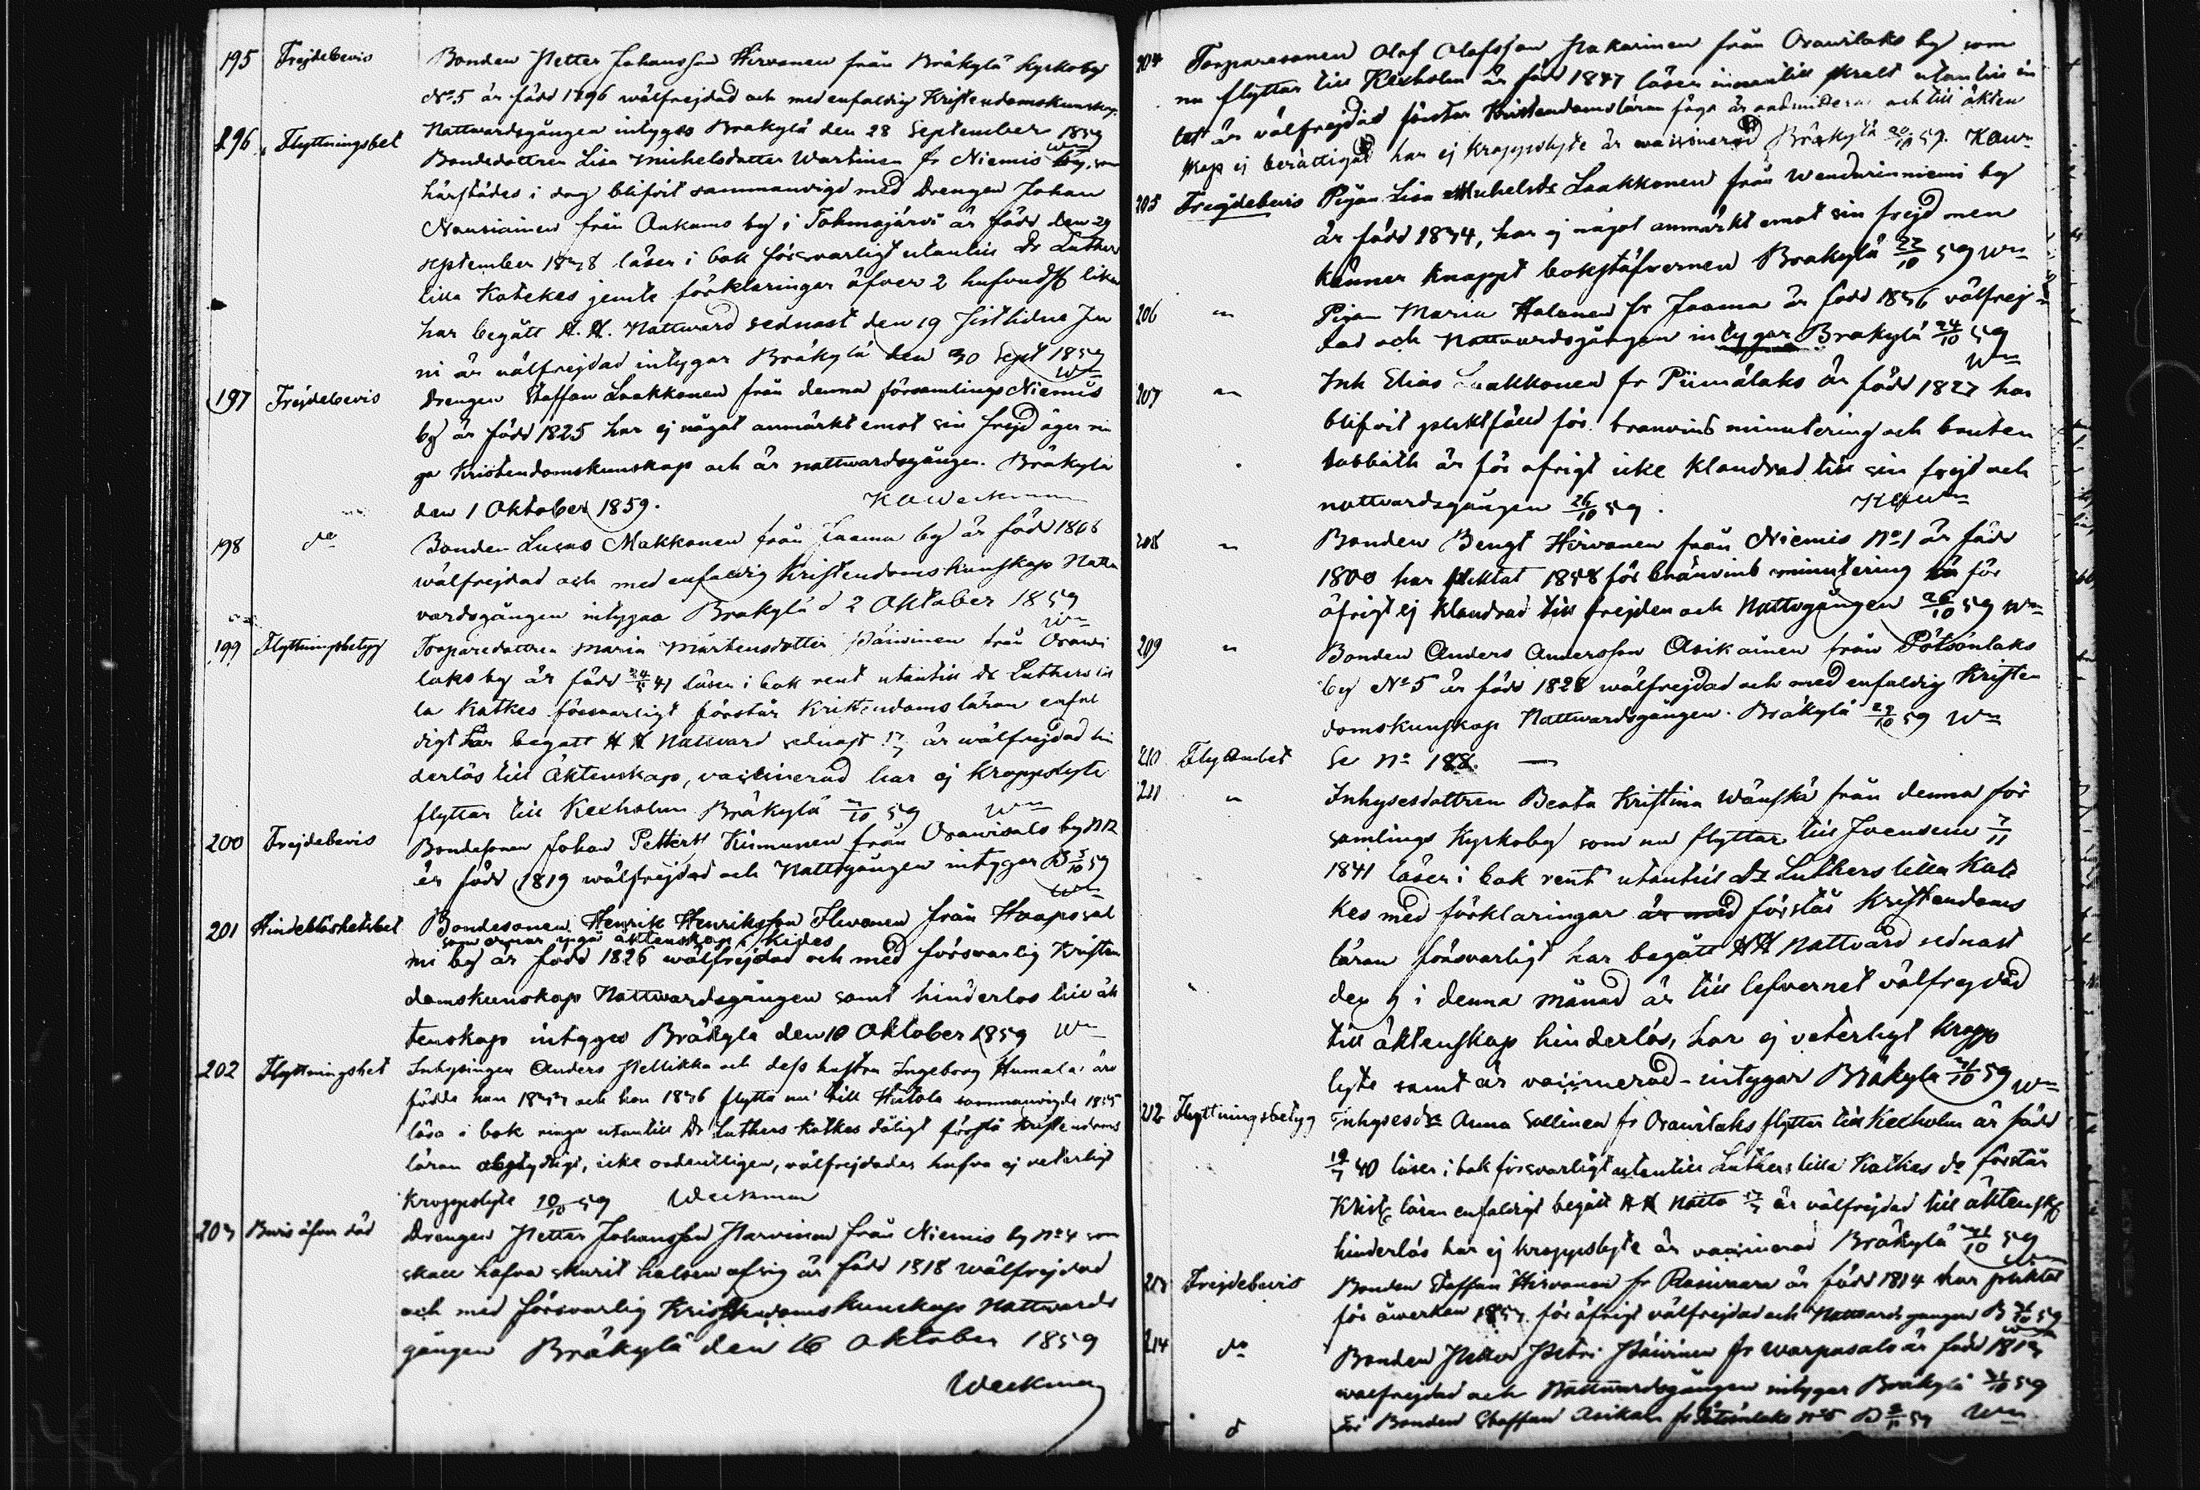 195 Frejdebevis Bonden Petter Johansson Hirvonen från Bräkylä Kyrkoby
No 5 är född 1796 wälfrejdad och med enfaldig Kristendomskunskap
Nattwardsgången intygas Brakylä den 28 September 1859
Wm
196 Flyttningsbet Bondedottren Lisa Michelsdotter Wartinen fr Niemis by, som
härstädes i dag blifvit sammanvigd med Drengen Johan
Nousiainen från Onkamo by i Tohmajärvi är född den 29
september 1838 läser i bok försvarligt utantill Dr Luthers
lilla Katekes jemte förklaringar öfver 2 hufvudst
har begått H. H. Nattward sednast den 19 sistlidne Ju
ni är wälfrejdad intygar Bräkylä den 30 Sept 1859
Wm
197 Frejdebevis Drengen Staffan Laakkonen från denna församlings Niemis
by är född 1825 har ej något anmärkt emot sin frejd äger rin
ga Kristendomskunskap och är nattwardsgången. Bräkylä
den 1 Oktober 1859. K O Weckman
198 do Bonden Lucas Makkonen från Jaama by är född 1808
wälfrejdad och med enfaldig Kristendomskunskap Natt
vardsgången intygas Brakylä d 2 Oktober 1859
Wm
199 Flyttningsbetyg Torparedottren Maria Mårtensdotter Päivinen från Oravi
laks by är född 24/5 41 läser i bok rent utantill Dr Luthers lil
la Katkes försvarligt förstår Kristendomsläran enfal
digt har begått H H Nattvard sednast är wälfrejdad hin
derlös till äktenskap, vaccinerad har ej kroppslyte
flyttar till Kexholm Bräkylä 59 Wm
200 Frejdebevis Bondesonen Johan Petterss Kinnunen från Oravisalo by N 12
är född 1819 wälfrejdad och Nattvgången intygar B 5/10 59
Wm
201 Hinderlöshetsbet Bondesonen Henrik Henriksson Ilvonen från Haaposal
som ernar ingå äktenskap i Kides
mi by är född 1826 wälfrejdad och med försvarlig Kristen
domskunskap Nattwardsgången samt hinderlös till äk
tenskap intygas Bräkylä den 10 Oktober 1859 Wm
202 Flyttningsbet Inhysingen Anders Pellikka och dess hustru Ingeborg Humala äro
födda han och hon flytta nu till Hiitola sammanvigde 1855
läsa i bok ringa utantill Dr Luthers Katkes dåligt förstå Kristendoms
läran icke ordentligen, wälfrejdade hafva ej veterligt
Kroppslyte 10/10 59 Weckman
203 Bevis öfver död Drengen Petter Johansson Parvinen från Niemis by No 4 som
skall hafva skurit halsen af sig är född 1818 Wälfrejdad
och med försvarlig Kristendomskunskap Nattwards
gången Bräkylä den 16 Oktober 1859
Weckman
204 Torparesonen Olof Olofsson Pakarinen från Oravilaks by som
nu flyttar till Kexholm är född 1847 läser innantill utantill in
tet är välfrejdad förstår Kristendomsläran föga är och till äkten
skap ej berättigad har ej kroppslyte är vaccinerad Bräkylä 20/10 59. KOWm
205 Frejdebevis Pigan Lisa Michelsdr Laakkonen från Wendarinniemi by
är född 1834, har ej något anmärkt emot sin frejd men
känner knappt bokstäfverna Brakylä 22/10 59 Wm
206 " Pigan Maria Halonen fr Jaama är född 1836 välfrej
dad och Nattvardsgången intygar Brakylä 24/10 59
Wm
207 " Inh Elias Laakkonen fr Piimälaks är född 1827 har
blifvit pliktfälld för branvins minutering och brutten
sabbath är för öfrigt icke klandrad till sin frejd och
nattvardsgången 26/10 59. KOWm
208 " Bonden Bengt Hirvonen från Niemis No 1 är född
1800 har pliktat 1858 för bränvins minutering för
öfrigt ej klandrad till frejden och Nattvgången 26/10 59 Wm
209 " Bonden Anders Andersson Asikainen från Pötsönlaks
by No 5 är född 1828 wälfrejdad och med enfaldig Kristen
domskunskap Nattwardsgången. Bräkylä 29/10 59 Wm
210 Flyttnbet Se No 188. —
211 " Inhysesdottren Beata Kristina Wänskä från denna för
samlings Kyrkoby som nu flyttar till Joensuu 7/11
1841 läser i bok rent utantill Dr Luthers lilla Kate
kes med förklaringar är med förstår Kristendoms
läran försvarligt har begått HH Nattvard sednast
den 9 i denna månad är till lefvernet välfrejdad
till äktenskap hinderlös, har ej veterligt kropps
lyte samt är vaccinerad - intygar Bräkylä 31/10 59 Wm
212 Flyttningsbetyg Inhysesdr Anna Sallinen fr Oravilaks flyttar till Kexholm är född
19/7 40 läser i bok försvarligt utantill Luthers lilla Katkes do förstår
Krist läran enfaldigt begått HH Nattv är välfrejdad till äktensk
hinderlös har ej kroppslyte är vaccinerad Bräkylä 31/10 59
Wm
213 Frejdebevis Bonden Staffan Hirvonen fr Rasivaara är född 1814 har pliktat
för åverkan för öfrigt välfrejdad och Nattvardsgången B 31/10 59
Wm
214 do Bonden Petter Petri Päivinen fr Warpasalo är född
wälfrejdad och Nattwardsgången intygar Bräkylä 31/10 59
d För Bonden Staffan Asikain fr Pötsönlaks No 5 B 2/11 59 Wm